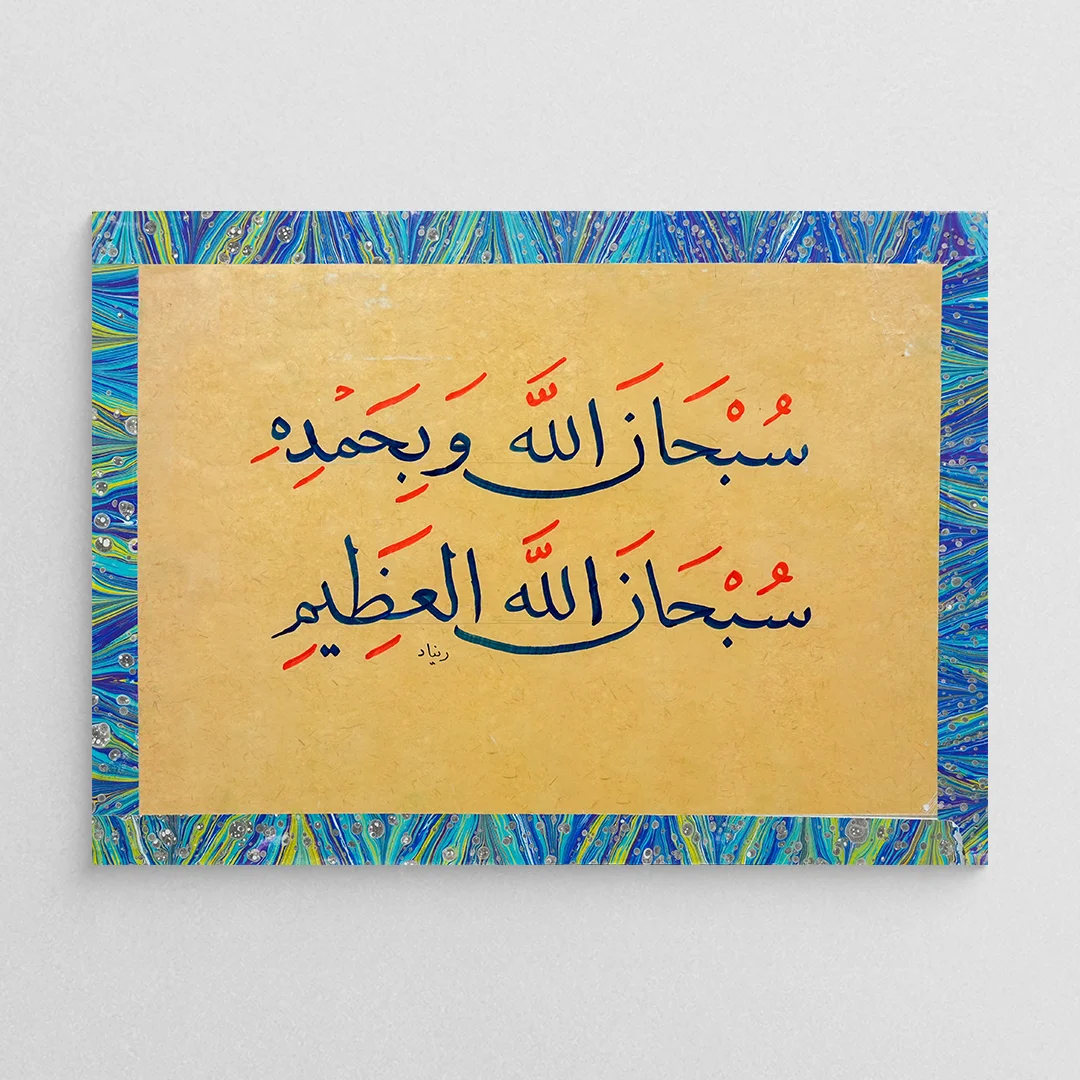 سُبْحَانَ اللَّه وَبِحَمْدِهِ
سُبْحَانَ اللَّه العَظِيمِ